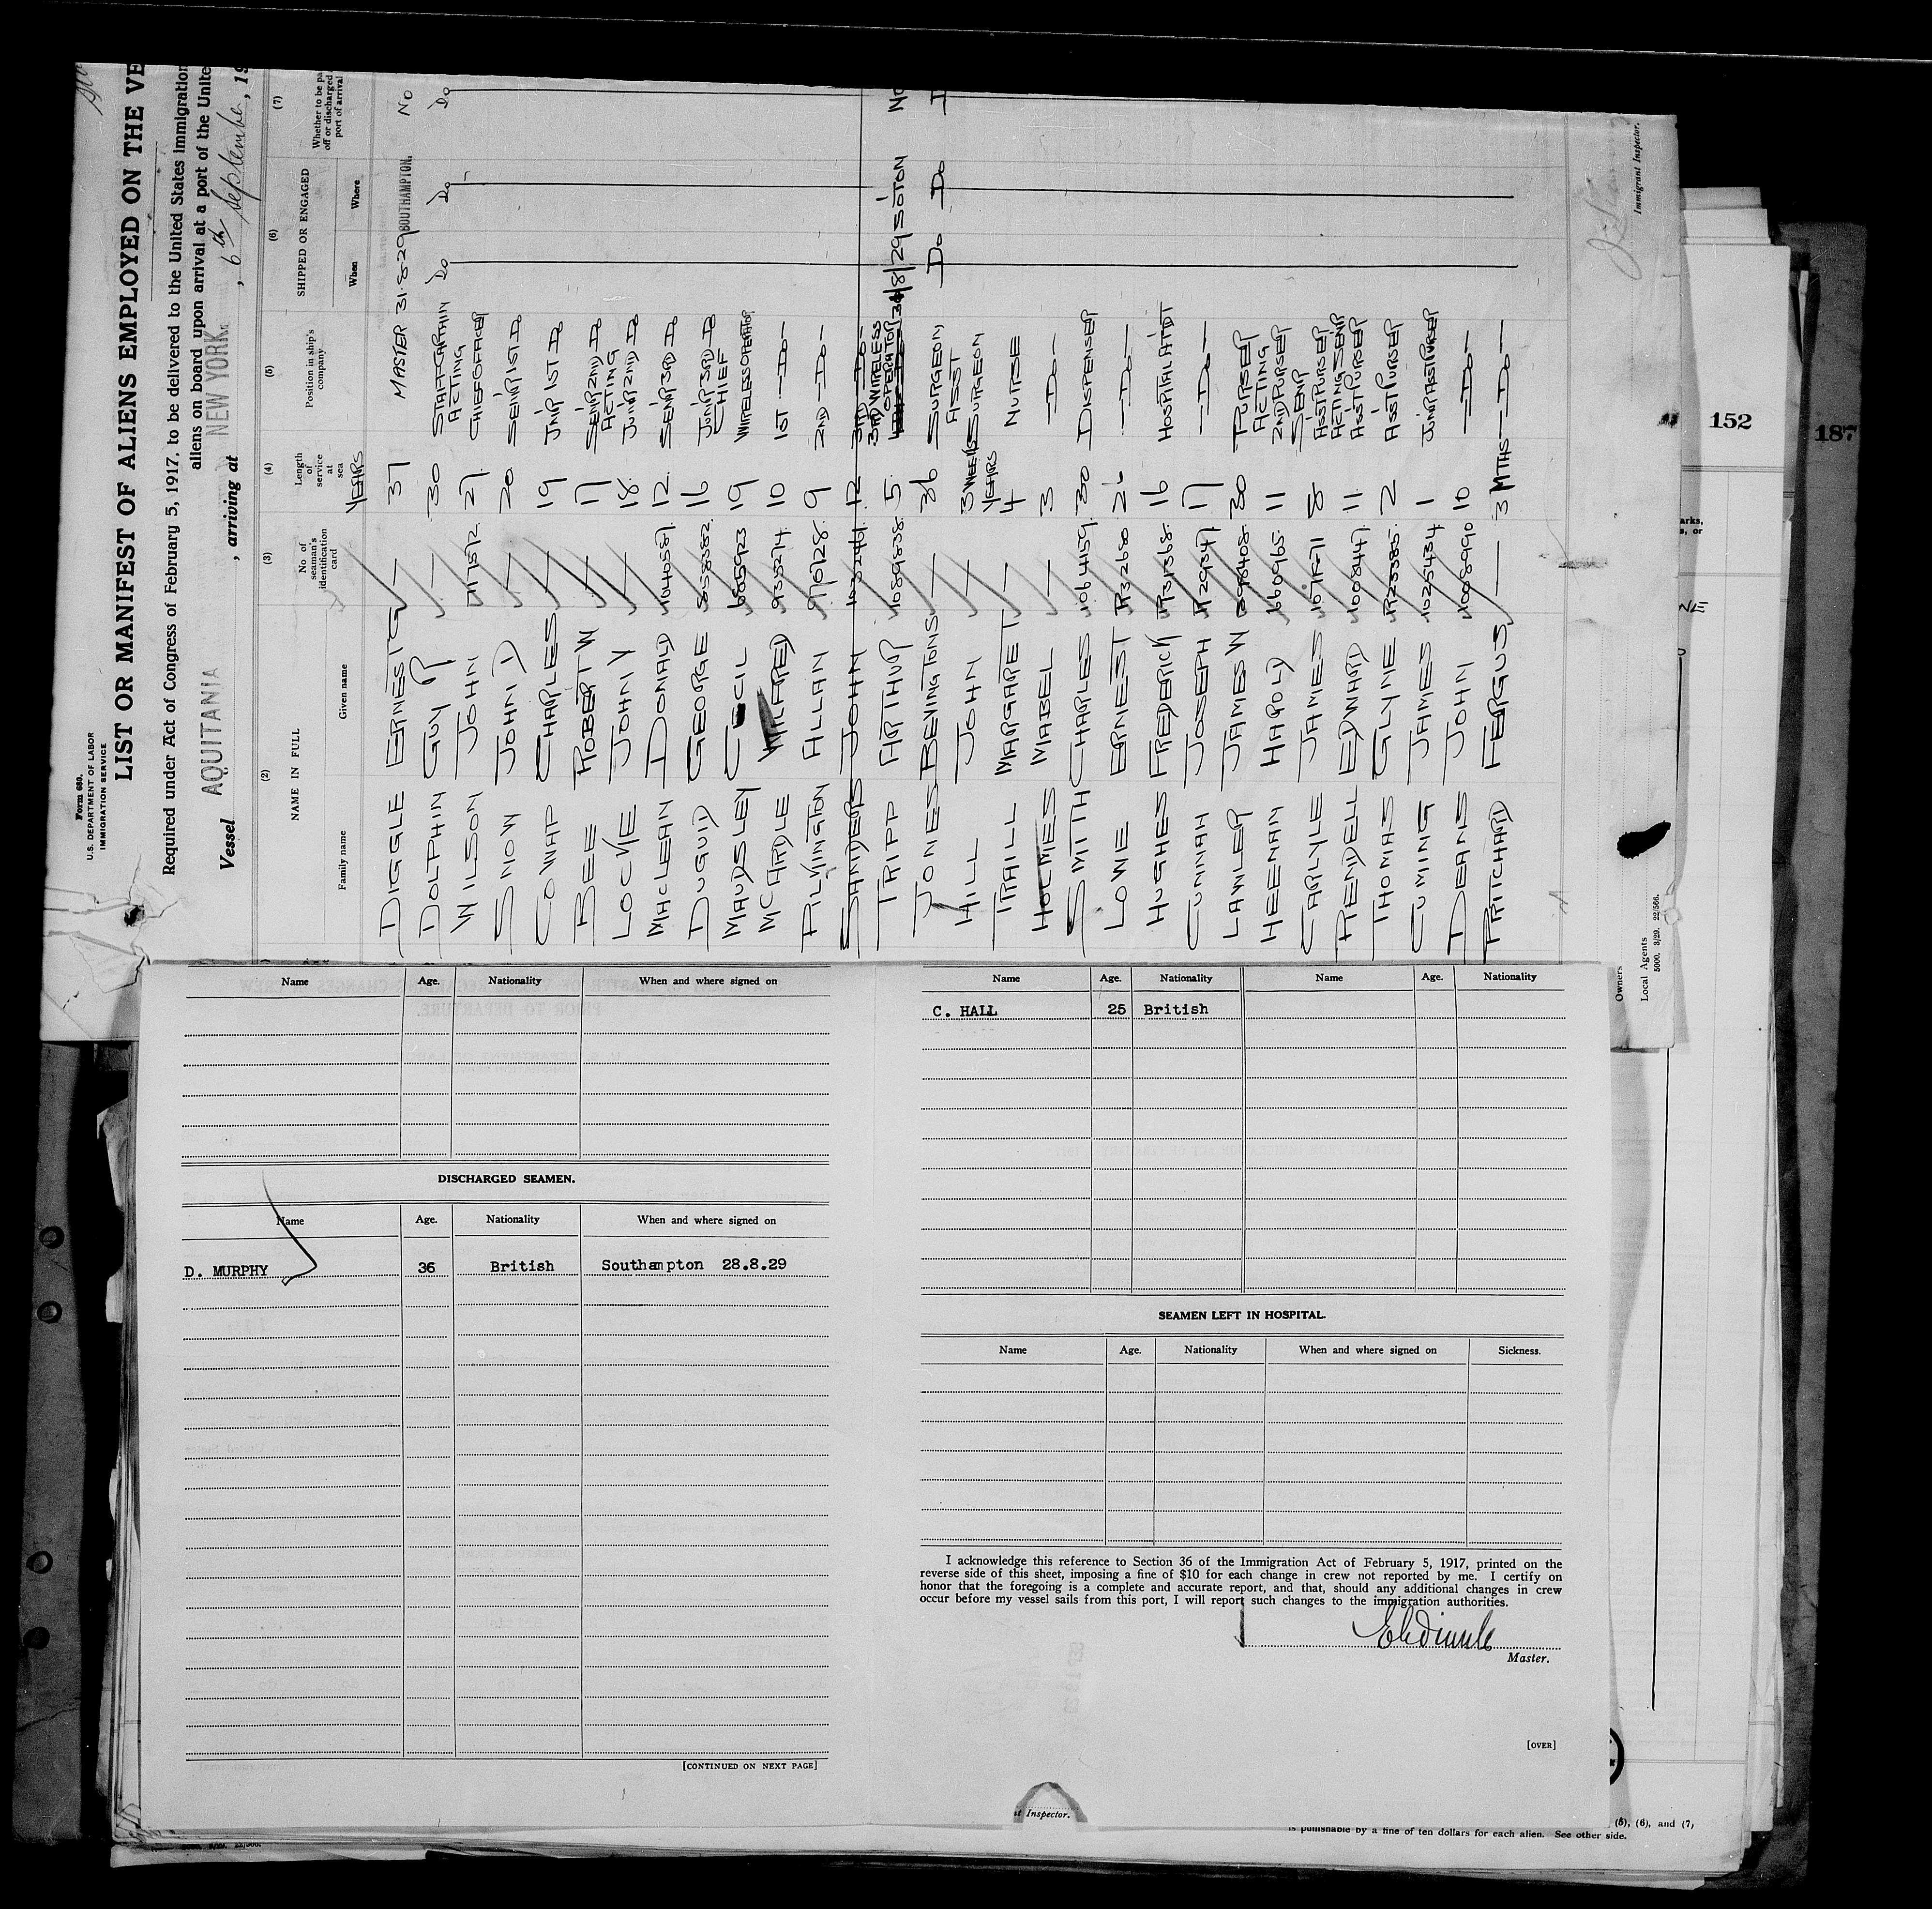 Form 680.
U.S. DEPARTMENT OF LABOR
IMMIGRATION SERVICE
LIST OR MANIFEST OF ALIENS EMPLOYED ON THE VE
Required under Act of Congress of February 5, 1917, to be delivered to the United States Immigration
aliens on board upon arrival at a port of the Unite
Vessel AQUITANIA, arriving at NEW YORK, 6th September, 19
(2) (3) (4) (5) (6) (7)
NAME IN FULL
Family name Given name
No of seaman's identification card
Length of service at sea
Position in ship's company
SHIPPED OR ENGAGED
When Where
Whether to be pa
off or discharged
port of arrival
YEARS
DIGGLE ERNEST G — 37 MASTER 31.8.29 SOUTHAMPTON. No
DOLPHIN GUY R — 30 STAFF CAPTAIN Do Do Do
WILSON JOHN 717572 27 ACTING CHIEF OFFICER
SNOW JOHN D — 20 SENR 1ST Do
COWAP CHARLES — 19 JNR 1ST Do
BEE ROBERT W — 17 SENR 2ND Do
LOCKE JOHN Y — 18. ACTING JUNR 2ND Do
MACLEAN DONALD 1040587. 12. SENR 3RD Do
DUGUID GEORGE 858382. 16 JUNR 3RD Do
MAUDSLEY CECIL 19 CHIEF WIRELESS OPERATOR
MCARDLE WILFRED 933274. 10 1ST —Do—
PILKINGTON ALLAN 9 2ND —Do—
SANDERS JOHN 12 3RD —Do—
TRIPP ARTHUR 1089838. 5. 3RD WIRELESS OPERATOR /8/29 SOTON No
JONES BEVINGTON S — 36 SURGEON Do Do
HILL JOHN — 3 WEEKS ASST SURGEON
TRAILL MARGARET — YEARS 4 NURSE
HOLMES MABEL — 3 —Do—
SMITH CHARLES 1064159. 30 DISPENSER
LOWE ERNEST 26 —Do—
HUGHES FREDERICK 16 HOSPITAL ATTDT
CUNNAH JOSEPH 17 —Do—
LAWLER JAMES W 30 PURSER
HEENAN HAROLD 660965. 11 ACTING 2ND PURSER
CARLYLE JAMES 8 SENR ASST PURSER
RENDELL EDWARD 1008447. 11. ACTING SENR ASST PURSER
THOMAS GLYNE 2 ASST PURSER
CUMING JAMES 1025434 1 JUNR ASST PURSER
DEANS JOHN 1008990 10 —Do—
PRITCHARD FERGUS — 3 MTHS —Do—
Immigrant Inspector.
Owners
Local Agents
5000. 3/29. 22/566.
152
187
arks,
s, or
NE
Name Age. Nationality When and where signed on
DISCHARGED SEAMEN.
Name Age. Nationality When and where signed on
D. MURPHY 36 British Southampton 28.8.29
[CONTINUED ON NEXT PAGE]
Name Age. Nationality Name Age. Nationality
C. HALL 25 British
SEAMEN LEFT IN HOSPITAL.
Name Age. Nationality When and where signed on Sickness.
I acknowledge this reference to Section 36 of the Immigration Act of February 5, 1917, printed on the
reverse side of this sheet, imposing a fine of $10 for each change in crew not reported by me. I certify on
honor that the foregoing is a complete and accurate report, and that, should any additional changes in crew
occur before my vessel sails from this port, I will report such changes to the immigration authorities.
Master.
[OVER]
t Inspector.
(5), (6), and (7)
is punishable by a fine of ten dollars for each alien. See other side.